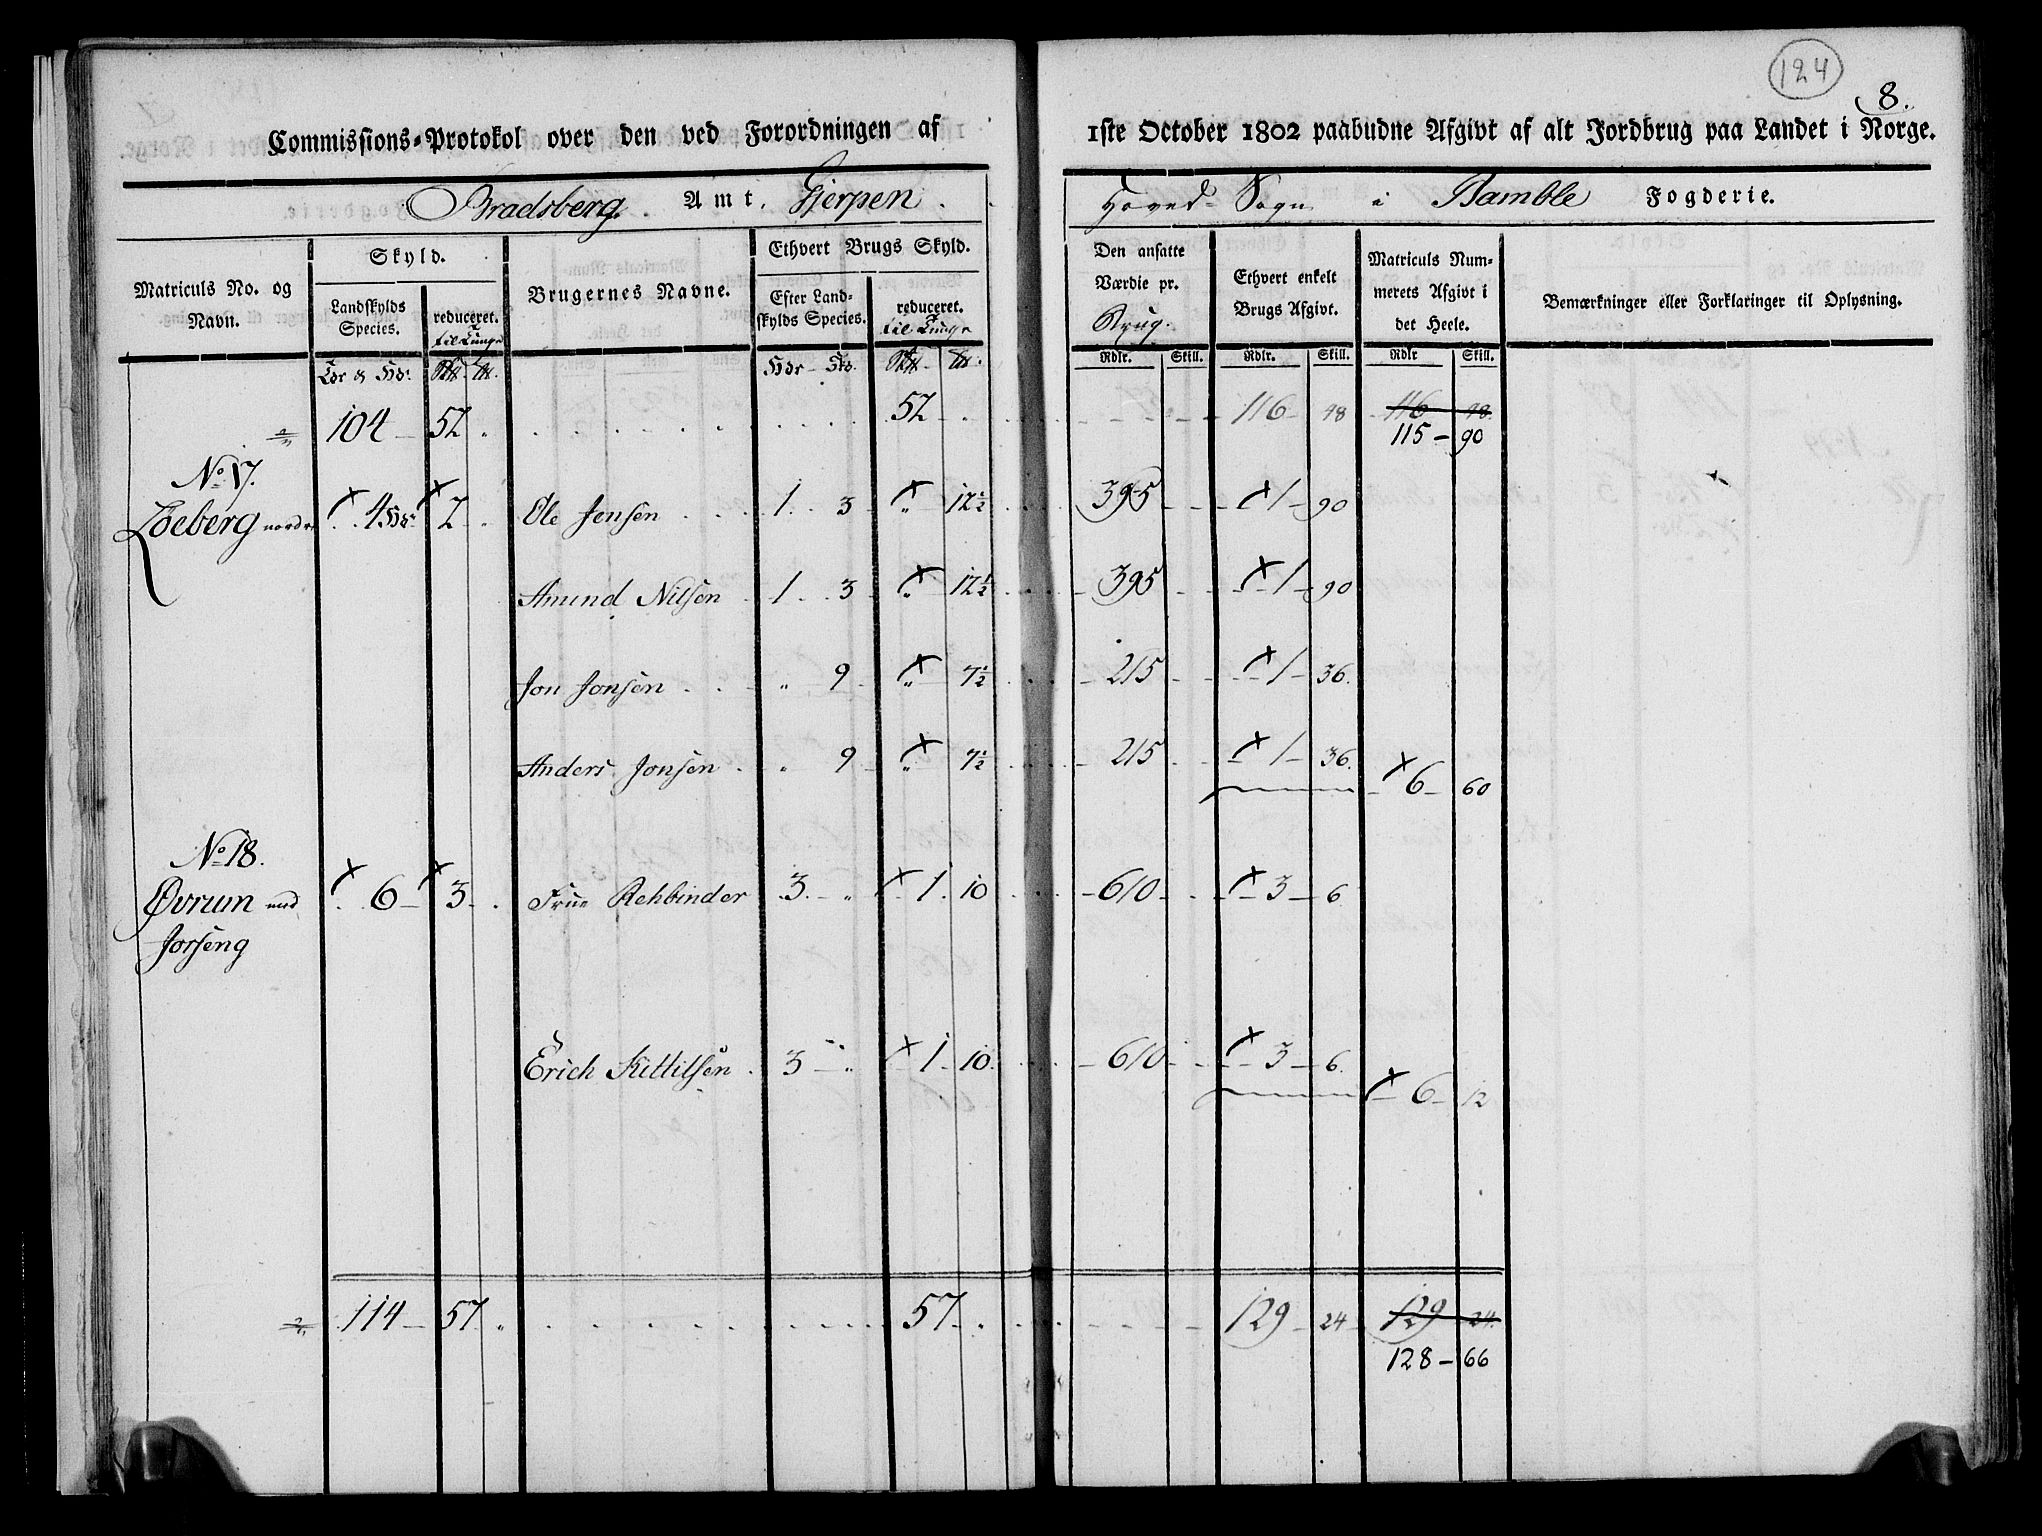 124
8.
Commissions-Protokol over den ved Forordningen af 1ste October 1802 paabudne Afgivt af alt Jordbrug paa Landet i Norge.
Bradsberg Amt. Gjerpen Hoved-Sogn i Bamble Fogderie.
Matriculs No. og Navn.
Skyld.
Landskylds Species.
reduceret. til Tunge
Brugernes Navne.
Ethvert Brugs Skyld.
Efter Landskylds Species.
reduceret. til Tunge
Den ansatte Værdie pr. Brug.
Ethvert enkelt Brugs Afgivt.
Matriculs Nummerets Afgivt i det Heele.
Bemærkninger eller Forklaringer til Oplysning.
Rdlr. Skill. Rdlr. Skill. Rdlr Skill.
104 52 52 116 48 116 48
115 90
No 17.
Løeberg nordre 4 2 Ole Jensen 1 3 12½ 395 1 90
Amund Nilsen 1 3 12½ 395 1 90
Jon Jonsen 9 7½ 215 1 36
Anders Jonsen 9 7½ 215 1 36 6 60
No 18.
Øvrum med 6 3 Frue Rehbinder 3 1 10 610 3 6
Jorseng
Erich Kittilsen 3 1 10 610 3 6 6 12
114 57 57 129 24 129 24
128 66